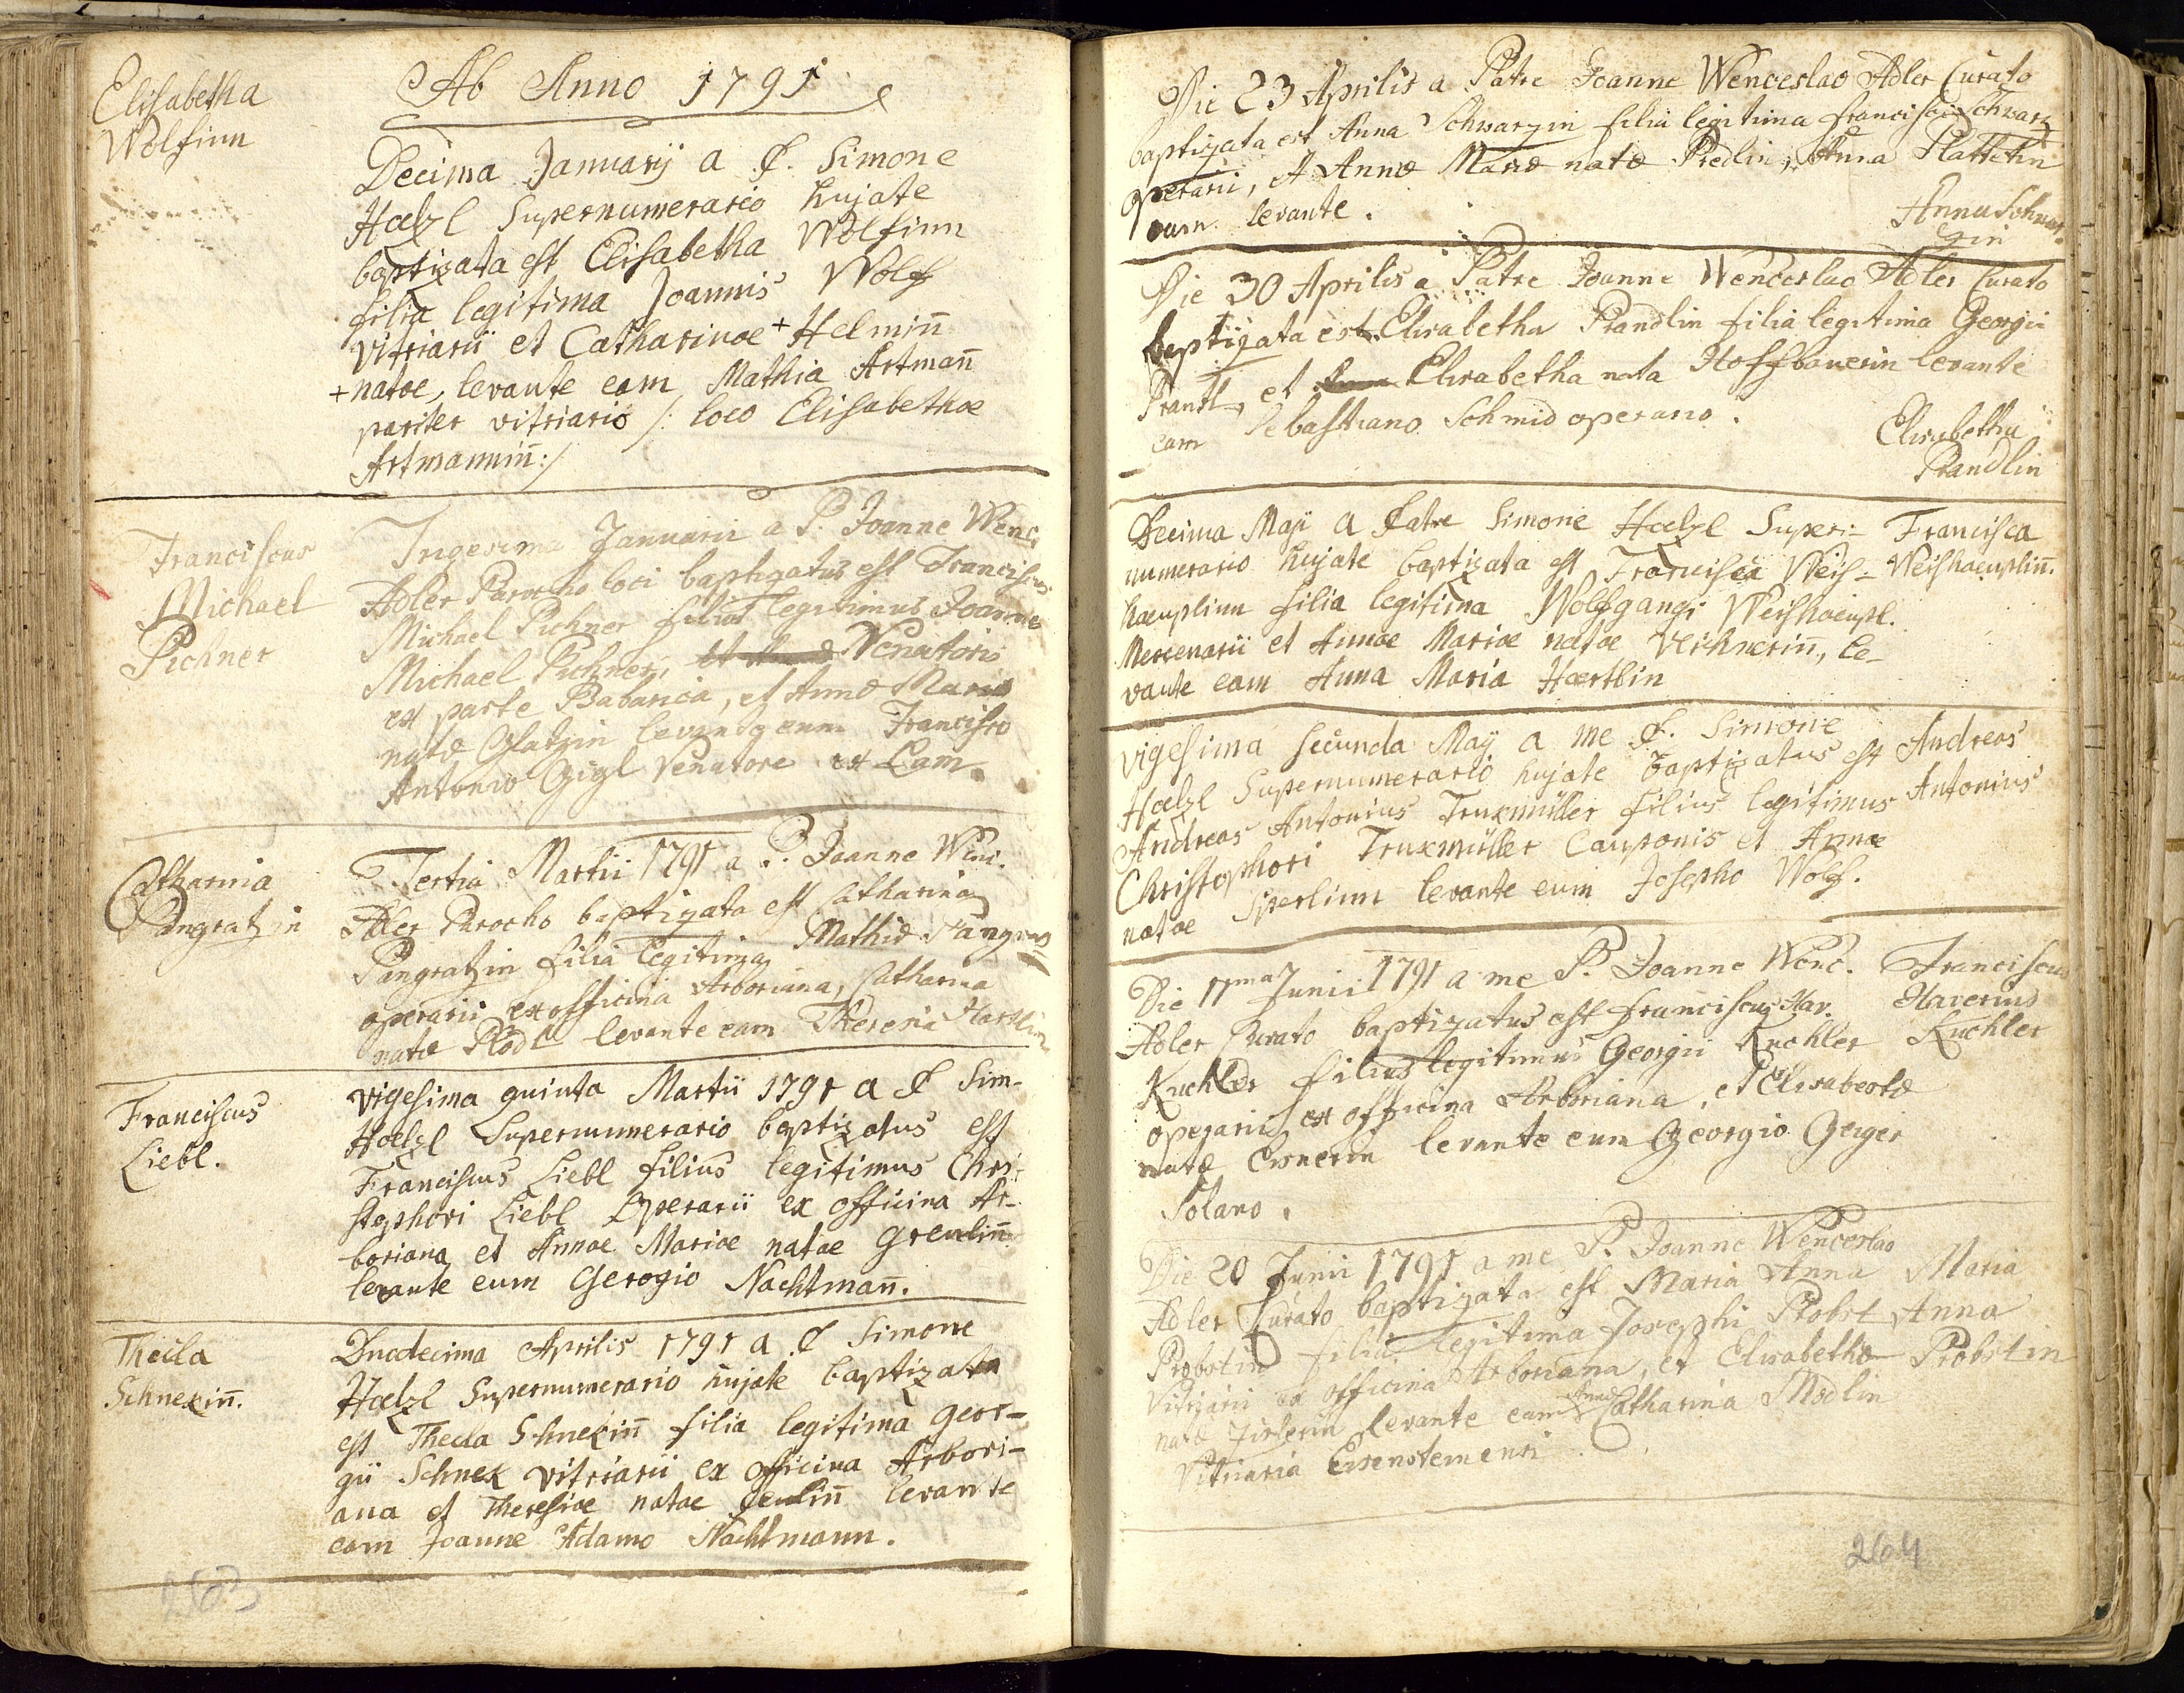 Ab Anno 1791
Elisabetha
Wolfinn
Decima Januarij a P. Simone
Hoelzl Supernumerario hujate
baptizata est Elisabetha Wolfinn
filia legitima Joannis Wolf
Vitriarii et Catharinae + Helminn̄
+ natae, levante eam Mathia Artmann̄
pariter vitriario /: loco Elisabethae
Artmanninn̄ :/
Franciscus
Michael
Pichner
Trigesima Januarii a P. Joanne Wenc.
Adler Parocho loci baptizatus est Franciscus
Michael Pichner filius legitimus Joannis
Michael Pichner, Venatoris
ex parte Babarica, et Annæ Mariæ
natæ Glatzin levante eum Francisco
Antonio Gigl Venatore ex Lam.
Catharina
Pangratzin
Tertia Martii 1791 a P. Joanne Wenc.
Adler Parocho baptizata est Catharina
Pangratzin filia legitima Mathiæ Pangraz
operarii ex officina Arboriana, Catharina
natæ Plödl levante eam Theresia Hartlin
Franciscus
Liebl.
Vigesima quinta Martii 1791 a P. Sim-
Hoelzl Supernumerario baptizatus est
Franciscus Liebl filius legitimus Chri-
stophori Liebl Operarii ex officina Ar-
boriana et Annae Mariae natae Greulinn̄
levante eum Gerogio Nachtmann̄.
Thecla
Schnekinn̄.
Duodecima Aprilis 1791 a P. Simone
Hoelzl Supernumerario hujate baptizata
est Thecla Schnekinn̄ filia legitima Geor-
gii Schnek vitriarii ex officina Arbori-
ana et Theresiae natae levante
eam Joanne Adamo Nachtmann.
263
Die 23 Aprilis a Patre Joanne Wenceslao Adler Curato
baptizata est Anna Schwarzin filia legitima Francisci Schwarz
operarii, et Annæ Mariæ natæ Predlin, Anna Plattetin
eam levante.
Anna Schwar-
zin
Die 30 Aprilis a Patre Joanne Wenceslao Adler Curato
baptizata est Elisabetha Prandlin filia legitima Georgii
Prantl, et Elisabetha nata Hoffbauerin levante
eam Sebastiano Schmid operario.
Elisabetha
Prandlin
Decima Maji a Patre Simone Hoelzl Super:-
numerario hujate baptizata est Francisca Weis:-
haeuplinn filia legitima Wolfgangi Weishaeupl.
Mercenarii et Annae Mariae natae, le-
vante eam Anna Maria Haertlin
Francisca
Weishaeuplinn̄.
Vigesima secunda Maij a me P. Simone
Hoelzl Supernumerario hujate baptizatus est
Andreas Antonius Truxmüller filius legitimus
Christophori Truxmüller Cauponis et Annae
natae Sperlinn levante eum Josepho Wolf.
Andreas
Antonius
Die 17ma Junii 1791 a me P. Joanne Wenc.
Adler Curato baptizatus est Franciscus Xav.
Kuchler filius legitimus Georgii Kuchler
operarii ex officina Arboriana, et Elisabethæ
natæ Eisnerin levante eum Georgio Geiger
Solano.
Franciscus
Xaverius
Kuchler
Die 20 Junii 1791 a me P. Joanne Wenceslao
Adler Curato baptizata est Maria Anna
Probstin filia legitima Josephi Probst
Vitriarii ex officina Arboriana, et Elisabethæ
natæ Zislerin levante eam Anna Catharina Mödlin
Vitriaria Eisenstemensi.
Maria
Anna
Probstin
264